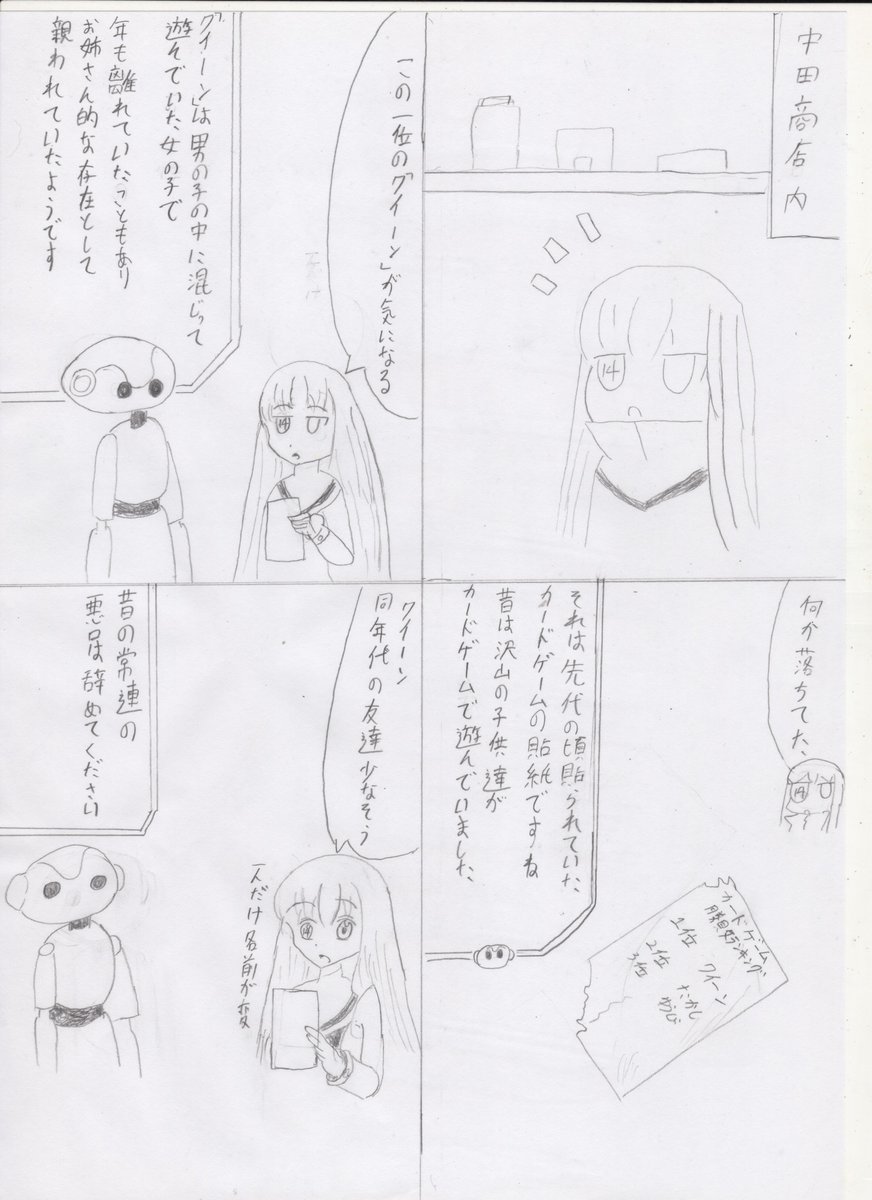 中田商店内
14
何か落ちてた、
14
それは先代の頃貼られていた
カードゲームの貼紙ですね
昔は沢山の子供達が
カードゲームで遊んでいました、
カードゲーム
1位 クイーン
2位 たかし
3位
この一位の「クイーン」が気になる
「クイーン」は男の子の中に混じって
遊んでいた女の子で
年も離れていたこともあり
お姉さん的な存在として
親われていたようです
14
クイーン
同年代の友達少なそう
一人だけ名前が変
14
昔の常連の
悪口は辞めてください